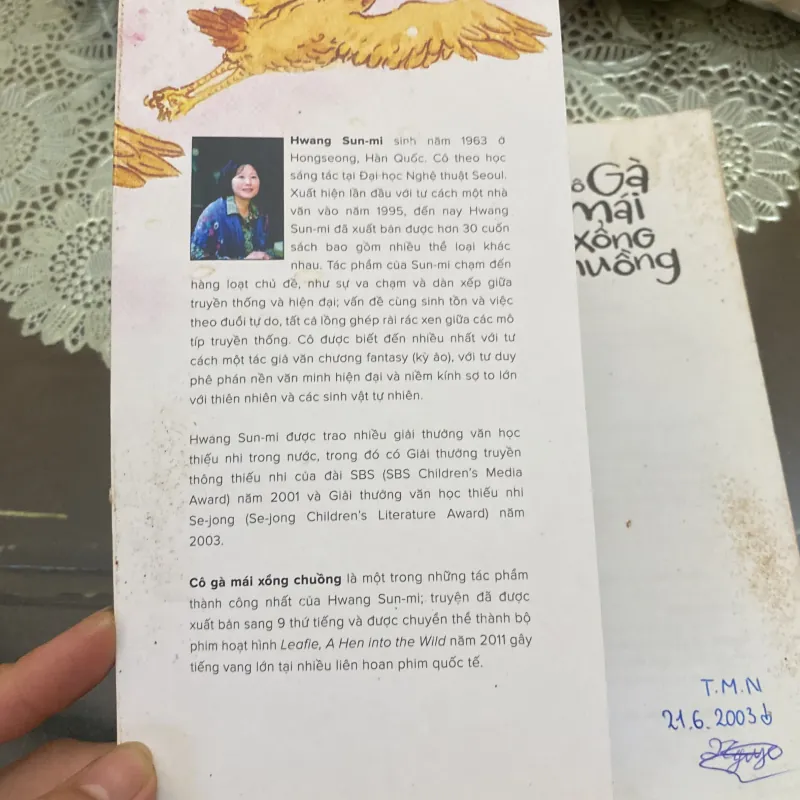 Hwang Sun-mi sinh năm 1963 ở
Hongseong, Hàn Quốc. Cô theo học
sáng tác tại Đại học Nghệ thuật Seoul.
Xuất hiện lần đầu với tư cách một nhà
văn vào năm 1995, đến nay Hwang
Sun-mi đã xuất bản được hơn 30 cuốn
sách bao gồm nhiều thể loại khác
nhau. Tác phẩm của Sun-mi chạm đến
hàng loạt chủ đề, như sự va chạm và dàn xếp giữa
truyền thống và hiện đại; vấn đề cùng sinh tồn và việc
theo đuổi tự do, tất cả lồng ghép rải rác xen giữa các mô
típ truyền thống. Cô được biết đến nhiều nhất với tư
cách một tác giả văn chương fantasy (kỳ ảo), với tư duy
phê phán nền văn minh hiện đại và niềm kính sợ to lớn
với thiên nhiên và các sinh vật tự nhiên.
Hwang Sun-mi được trao nhiều giải thưởng văn học
thiếu nhi trong nước, trong đó có Giải thưởng truyền
thông thiếu nhi của đài SBS (SBS Children's Media
Award) năm 2001 và Giải thưởng văn học thiếu nhi
Se-jong (Se-jong Children's Literature Award) năm
2003.
Cô gà mái xổng chuồng là một trong những tác phẩm
thành công nhất của Hwang Sun-mi; truyện đã được
xuất bản sang 9 thứ tiếng và được chuyển thể thành bộ
phim hoạt hình Leafie, A Hen into the Wild năm 2011 gây
tiếng vang lớn tại nhiều liên hoan phim quốc tế.
Gà
mái
xổng
T.M.N
21.6.2003